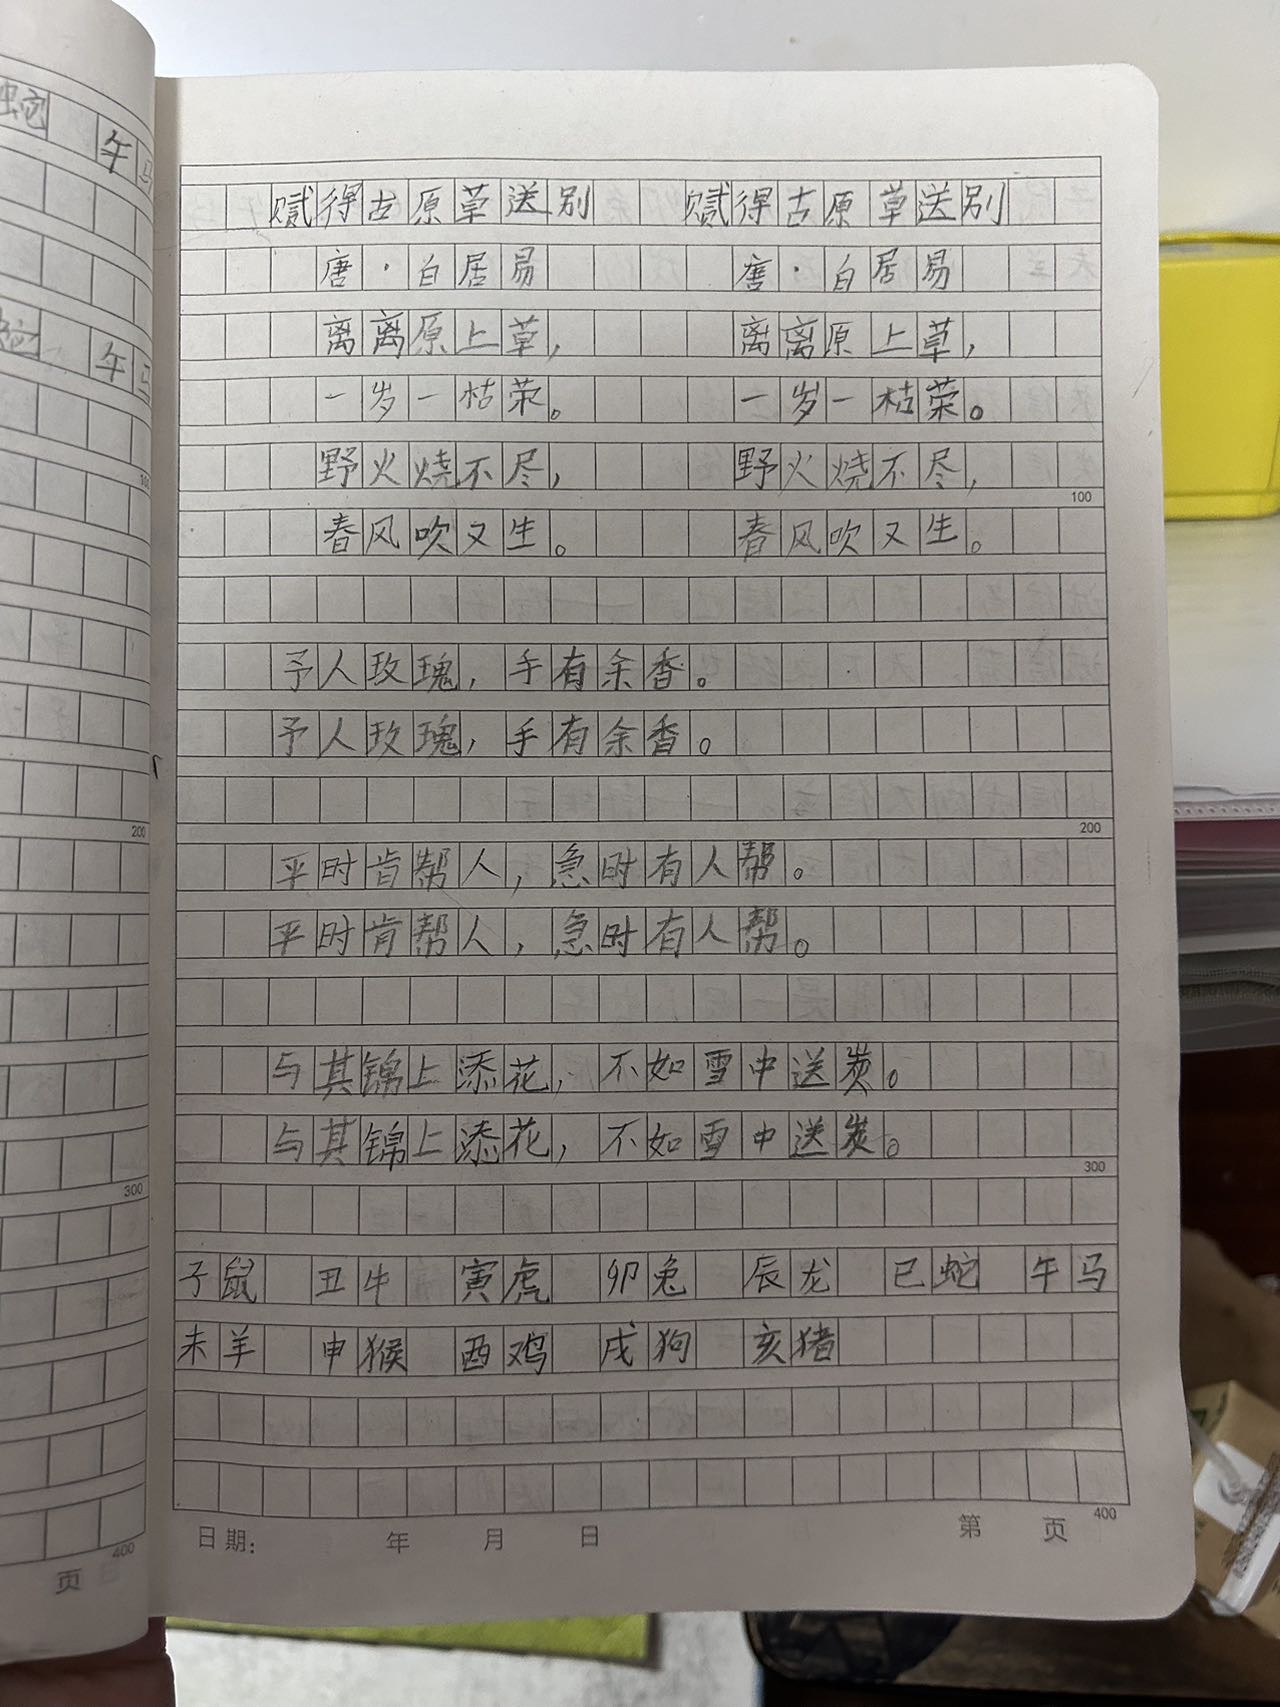 蛇 午马
蛇 午马
100
200
300
400
页
赋得古原草送别 赋得古原草送别
唐·白居易 唐·白居易
离离原上草, 离离原上草,
一岁一枯荣。 一岁一枯荣。
野火烧不尽, 野火烧不尽,
100
春风吹又生。 春风吹又生。
予人玫瑰,手有余香。
予人玫瑰,手有余香。
200
平时肯帮人,急时有人帮。
平时肯帮人,急时有人帮。
与其锦上添花,不如雪中送炭。
与其锦上添花,不如雪中送炭。
300
子鼠 丑牛 寅虎 卯兔 辰龙 巳蛇 午马
未羊 申猴 酉鸡 戌狗 亥猪
400
日期: 年 月 日 第 页